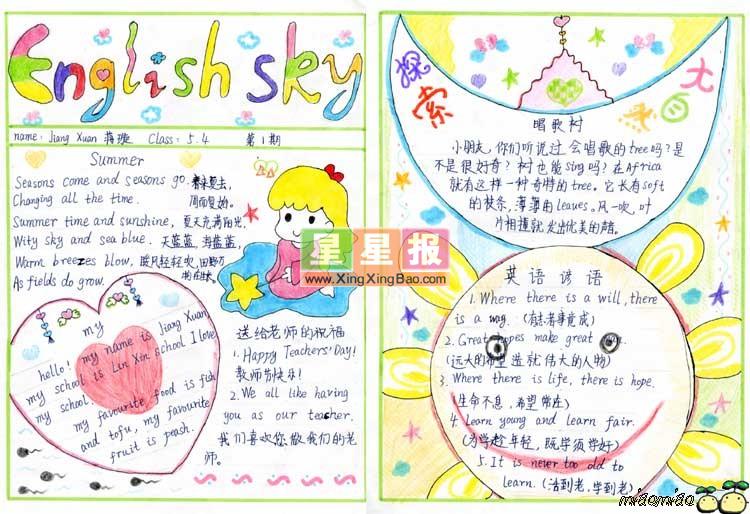 English sky
name: Jiang Xuan 蒋璇 Class: 5.4 第1期
Summer
Seasons come and seasons go. 春来夏去,
Changing all the time. 周而复始。
Summer time and sunshine, 夏天充满阳光,
Wity sky and sea blue. 天蓝蓝,海蓝蓝,
Warm breezes blow, 暖风轻轻吹,田野万
As fields do grow.
my
hello! my name is Jiang Xuan
my school is Lin Xin school I love
my school.
my favourite food is fish
and tofu, my favourite
fruit is peash.
送给老师的祝福
1. Happy Teachers' Day!
教师节快乐!
2. We all like having
you as our teacher.
我们喜欢您做我们的老
师。
星星报
www.XingXingBao.com
探索
大
唱歌树
小朋友,你们听说过会唱歌的tree吗?是
不是很好奇?树也能sing吗?在Africa
就有这样一种奇特的tree。它长有soft
的枝条,薄薄的leaves。风一吹,叶
片相撞就发出优美的
英语谚语
1. Where there is a will, there
is a way. (有志者事竟成)
2. Great hopes make great
(远大的希望造就伟大的人物)
3. Where there is life, there is hope.
(生命不息,希望常在)
4 Learn young and learn fair.
(为学趁年轻,既学须学好)
5. It is never too old to
learn. (活到老,学到老)
miaomiao